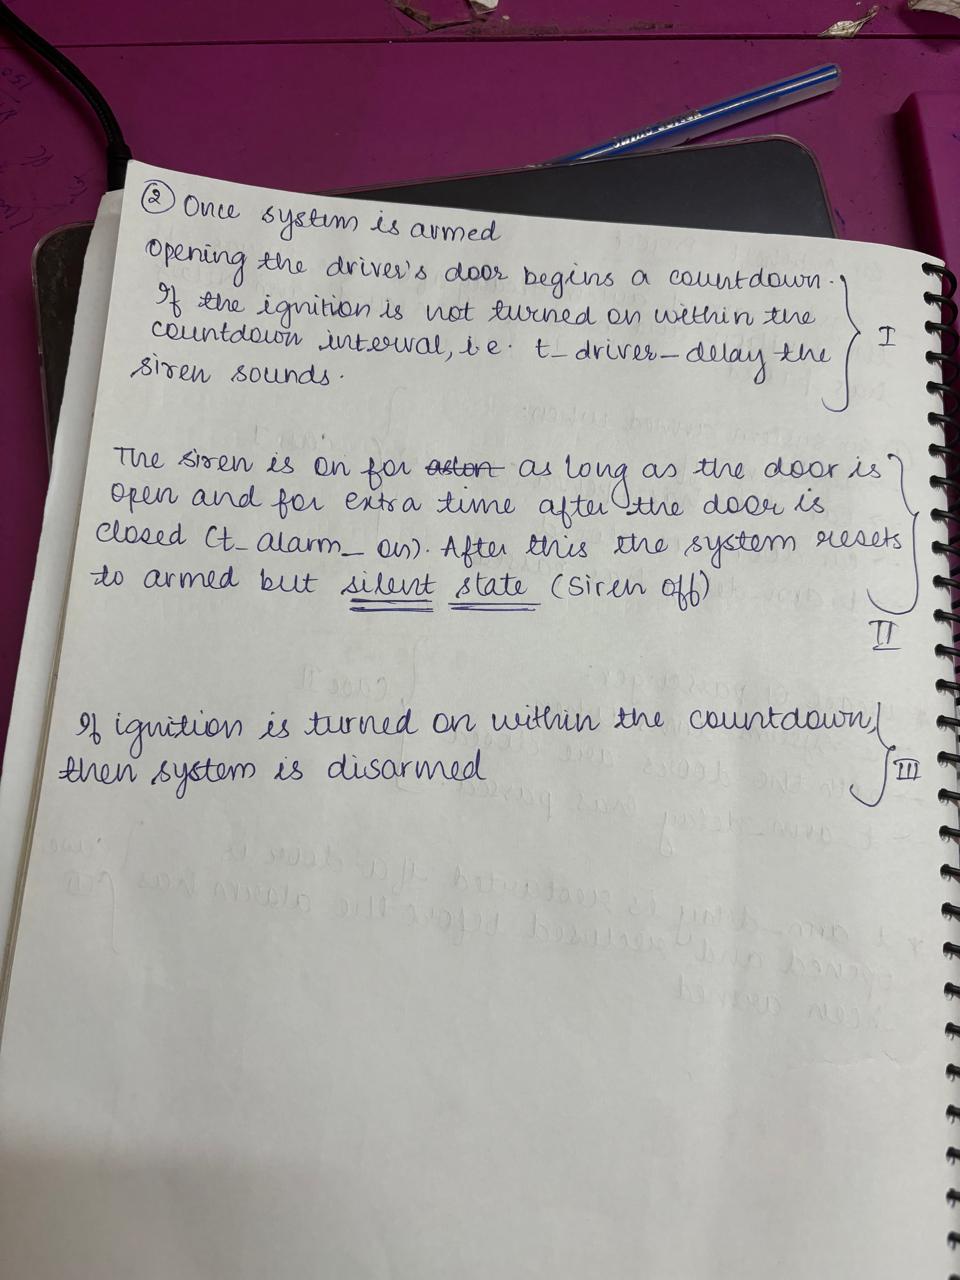 ② Once system is armed
Opening the driver's door begins a countdown.
If the ignition is not turned on within the
countdown interval, i.e. t_driver_delay the
siren sounds.
I
The siren is on for as long as the door is
open and for extra time after the door is
closed (t_alarm_on). After this the system resets
to armed but silent state (siren off)
II
If ignition is turned on within the countdown,
then system is disarmed
III